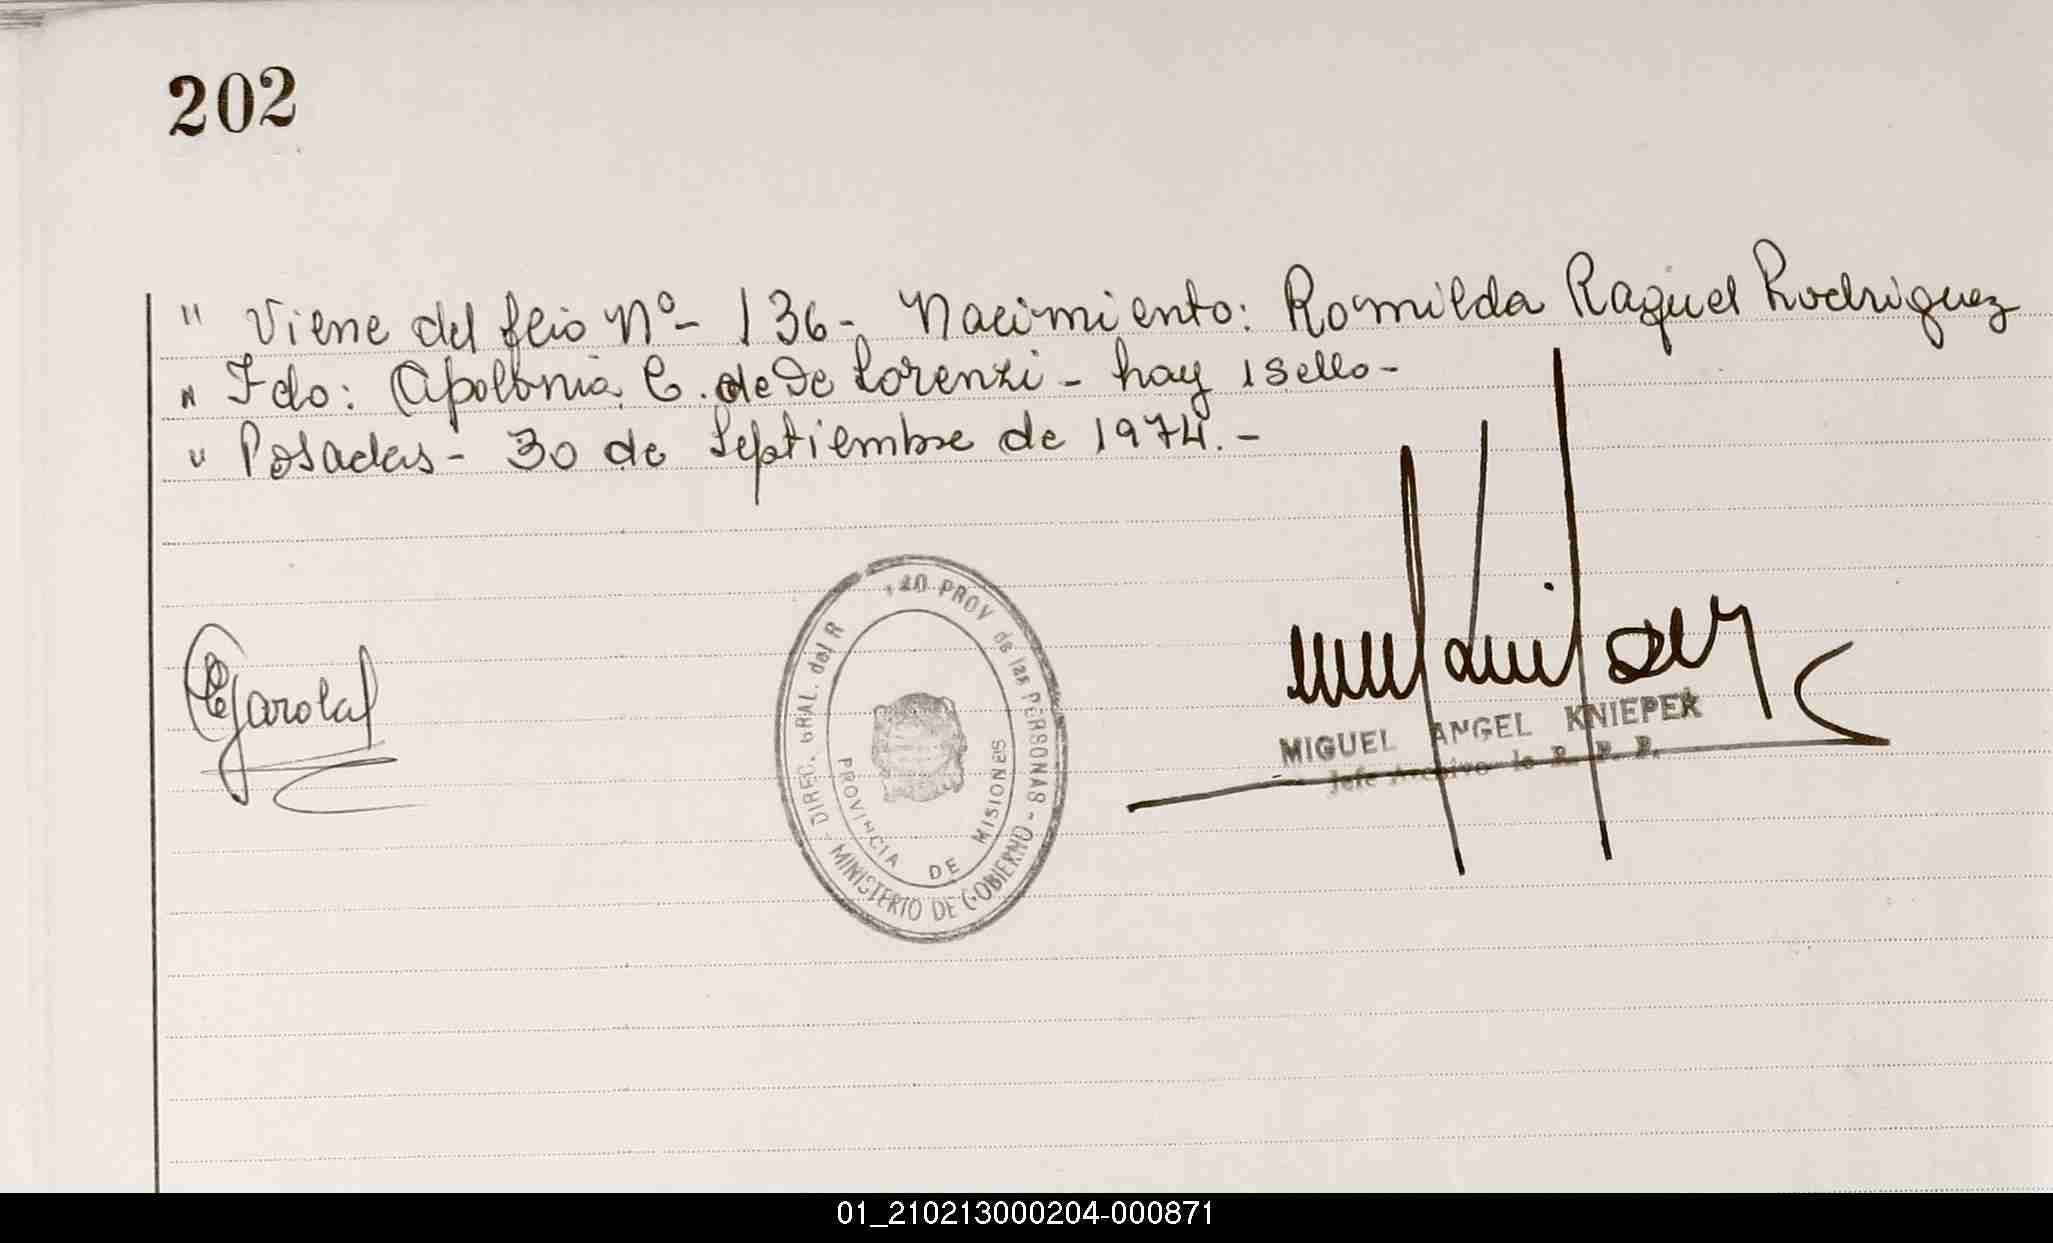 202
" Viene del flio Nº- 136- Nacimiento: Romilda Raquel Rodriguez
" Fdo: Apolonia C. de De Lorenzi - hay 1 sello-
" Posadas - 30 de Septiembre de 1974.-
DIREC. GRAL. del R PROV de las PERSONAS - MINISTERIO DE GOBIERNO -
PROVINCIA DE MISIONES
MIGUEL ANGEL KNIEPER
Jefe Archivo R. P. P.
01_210213000204-000871